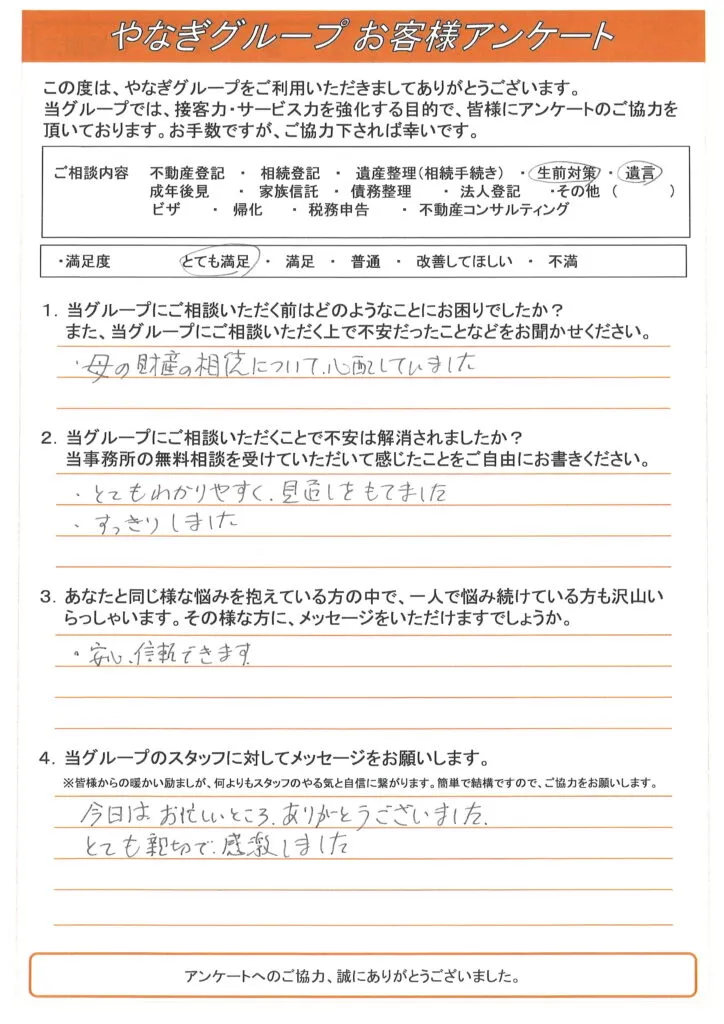 やなぎグループ お客様アンケート
この度は、やなぎグループをご利用いただきましてありがとうございます。
当グループでは、接客力・サービス力を強化する目的で、皆様にアンケートのご協力を
頂いております。お手数ですが、ご協力下されば幸いです。
ご相談内容 不動産登記 ・ 相続登記 ・ 遺産整理(相続手続き) ・ 生前対策 ・ 遺言
成年後見 ・ 家族信託 ・ 債務整理 ・ 法人登記 ・その他 ( )
ビザ ・ 帰化 ・ 税務申告 ・ 不動産コンサルティング
・満足度 とても満足 ・ 満足 ・ 普通 ・ 改善してほしい ・ 不満
1. 当グループにご相談いただく前はどのようなことにお困りでしたか?
また、当グループにご相談いただく上で不安だったことなどをお聞かせください。
・母の財産の相続について、心配していました
2. 当グループにご相談いただくことで不安は解消されましたか?
当事務所の無料相談を受けていただいて感じたことをご自由にお書きください。
・とてもわかりやすく、見通しをもてました
・すっきりしました
3. あなたと同じ様な悩みを抱えている方の中で、一人で悩み続けている方も沢山い
らっしゃいます。その様な方に、メッセージをいただけますでしょうか。
・安心、信頼できます
4. 当グループのスタッフに対してメッセージをお願いします。
※皆様からの暖かい励ましが、何よりもスタッフのやる気と自信に繋がります。簡単で結構ですので、ご協力をお願いします。
今日は お忙しいところ、ありがとうございました。
とても親切で、感激しました
アンケートへのご協力、誠にありがとうございました。